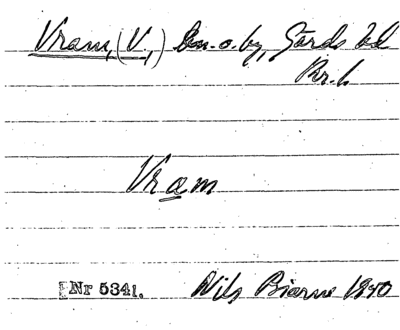 Vram, (V.,) sn. o. by, Gärds hd
Kr. l.
Vram
Nr 5341. Nils Bjarne 1940